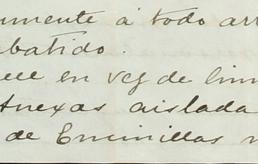 umente á todo arr
batido.
ue en vez de lim
Anexas aislada
de Encinillas